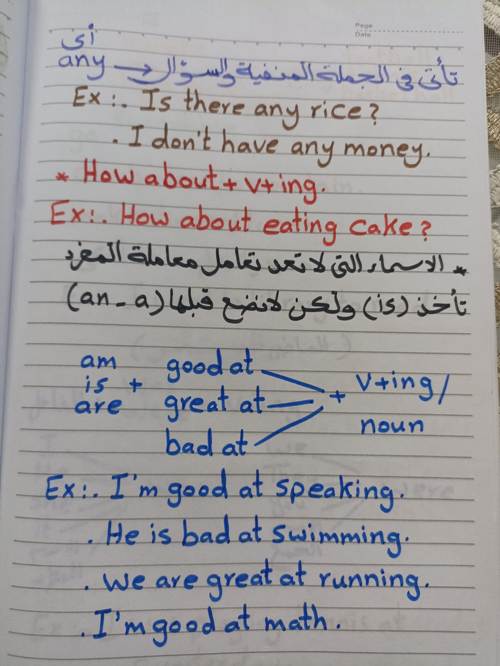 Page
Date
أى
any → تأتى فى الجملة المنفية والسؤال
Ex:. Is there any rice?
. I don't have any money.
* How about + v + ing.
Ex:. How about eating cake?
* الاسماء التى لا تعد تعامل معاملة المفرد
تأخذ (is) ولكن لانضع قبلها (an - a)
am good at
is + great at + v+ing/
are bad at noun
Ex:. I'm good at speaking.
. He is bad at swimming.
. We are great at running.
. I'm good at math.